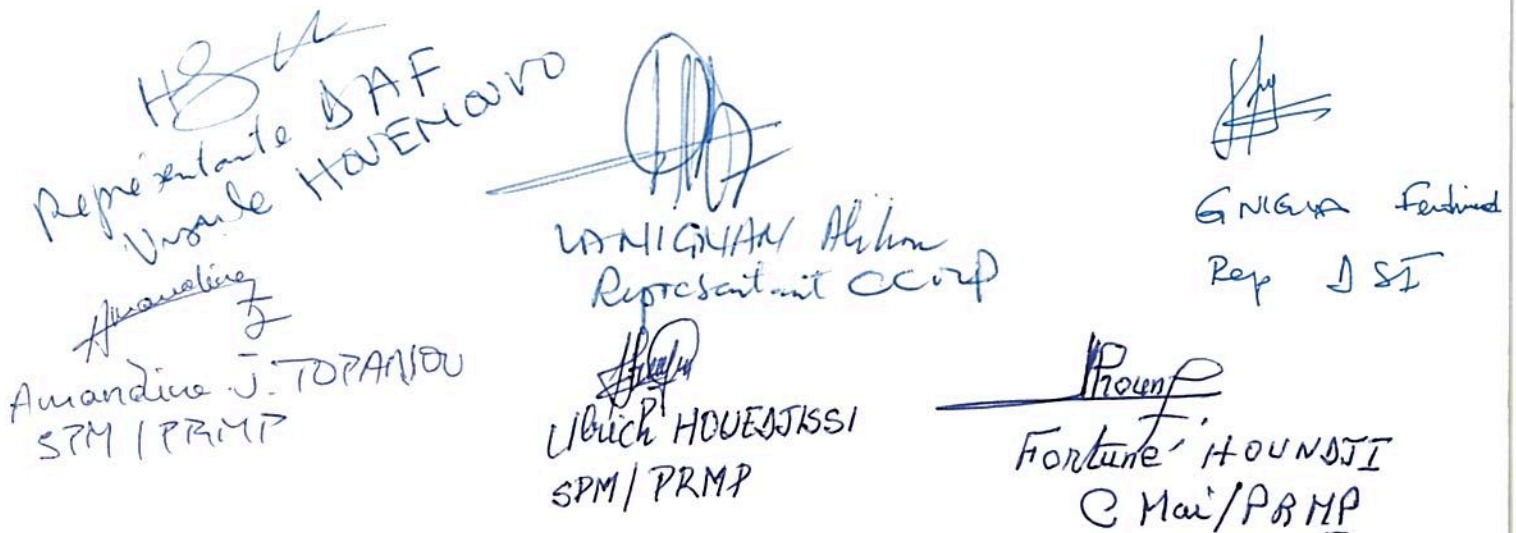 Représentante DAF
Ursule HOUEMOUVO
LANIGNAN
Représentant CCMP
GNIGLA Ferdinand
Rep DSI
Amandine
Amandine J. TOPANOU
SPM / PRMP
Ulrich HOUEDJISSI
SPM / PRMP
Fortuné HOUNDJI
C Mai/PRMP